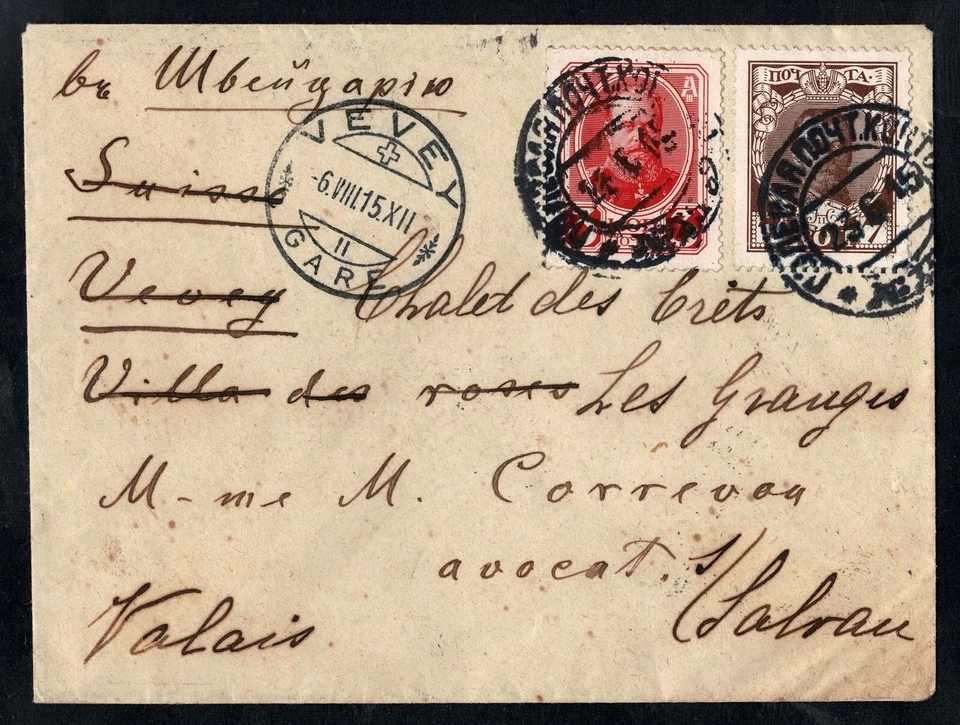 въ Швейцарію
Suisse
VEVEY
-6.VIII.15.XII
II
GARE
ПОЧ ТА.
Vevey Chalet des Crêts
Villa des roses Les Granges
M-me M. Correvon
avocat. s/Salvan
Valais